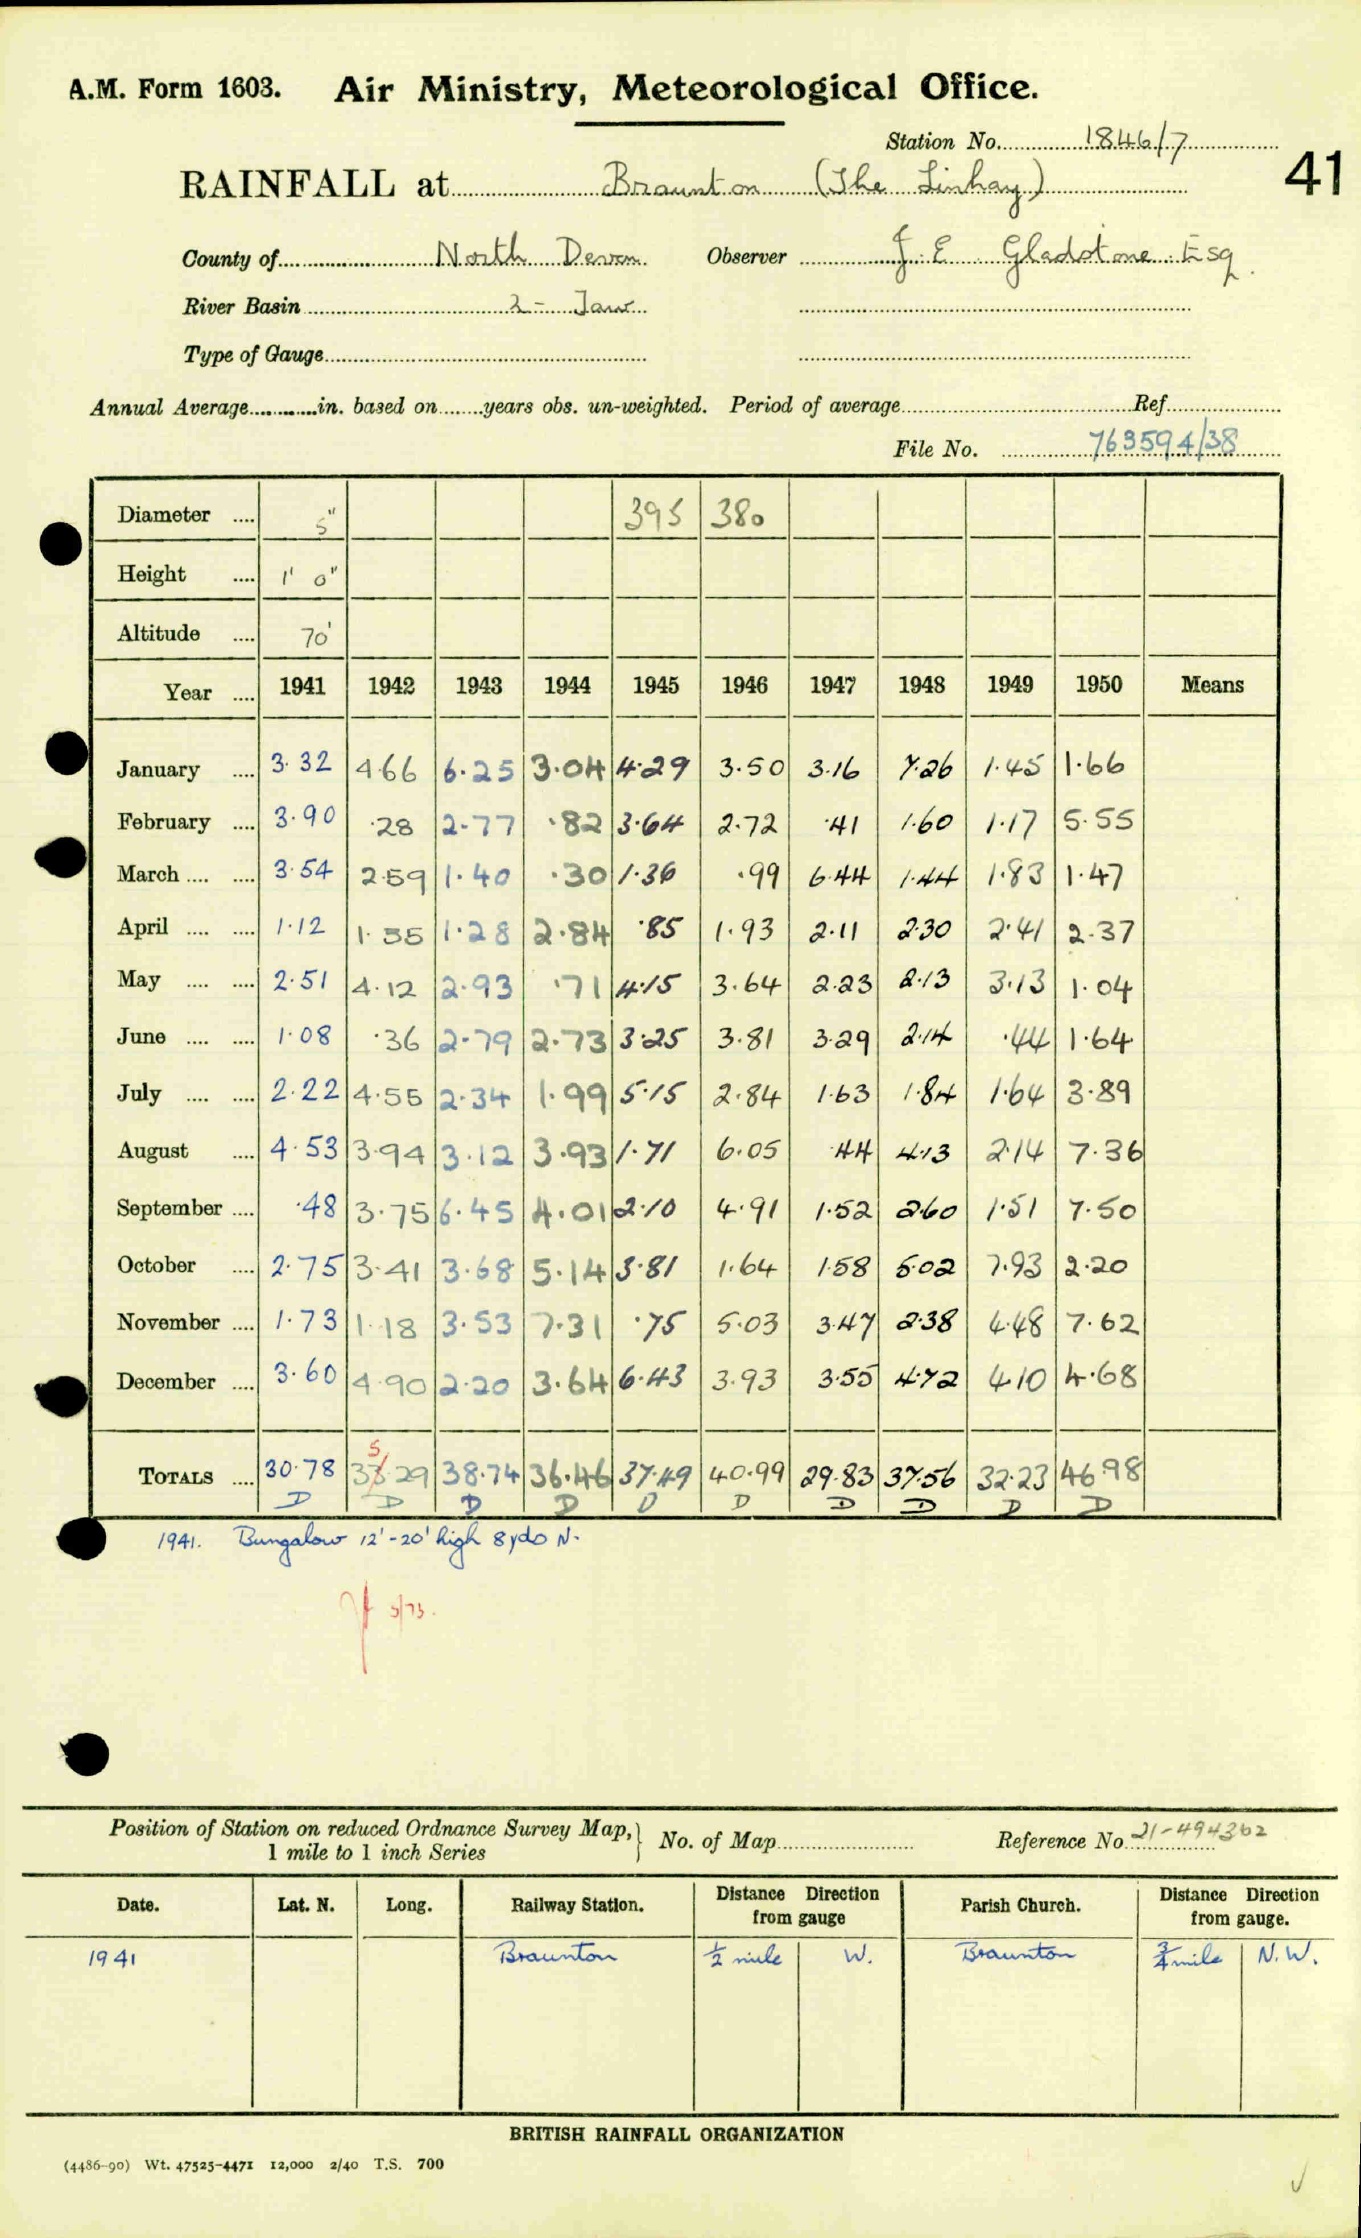 A.M. Form 1603. Air Ministry, Meteorological Office.
Station No. 1846/7
41
RAINFALL at Braunton (The Linhay)
County of North Devon Observer J. E. Gladstone Esq.
River Basin 2 - Taw
Type of Gauge
Annual Average in. based on years obs. un-weighted. Period of average Ref.
File No. 763594/38
Diameter 5" 395 380
Height 1' 0"
Altitude 70'
Year 1941 1942 1943 1944 1945 1946 1947 1948 1949 1950 Means
January 3.32 4.66 6.25 3.04 4.29 3.50 3.16 7.26 1.45 1.66
February 3.90 .28 2.77 .82 3.64 2.72 .41 1.60 1.17 5.55
March 3.54 2.59 1.40 .30 1.36 .99 6.44 1.44 1.83 1.47
April 1.12 1.55 1.28 2.84 .85 1.93 2.11 2.30 2.41 2.37
May 2.51 4.12 2.93 .71 4.15 3.64 2.23 2.13 3.13 1.04
June 1.08 .36 2.79 2.73 3.25 3.81 3.29 2.14 .44 1.64
July 2.22 4.55 2.34 1.99 5.15 2.84 1.63 1.84 1.64 3.89
August 4.53 3.94 3.12 3.93 1.71 6.05 .44 4.13 2.14 7.36
September .48 3.75 6.45 4.01 2.10 4.91 1.52 2.60 1.51 7.50
October 2.75 3.41 3.68 5.14 3.81 1.64 1.58 5.02 7.93 2.20
November 1.73 1.18 3.53 7.31 .75 5.03 3.47 2.38 4.48 7.62
December 3.60 4.90 2.20 3.64 6.43 3.93 3.55 4.72 4.10 4.68
5
TOTALS 30.78 33.29 38.74 36.46 37.49 40.99 29.83 37.56 32.23 46.98
D D D D D D D D D D
1941. Bungalow 12'-20' high 8 yds N.
5/73.
Position of Station on reduced Ordnance Survey Map, 1 mile to 1 inch Series } No. of Map Reference No. 21-494362
Date. Lat. N. Long. Railway Station. Distance Direction from gauge Parish Church. Distance Direction from gauge.
1941 Braunton ½ mile W. Braunton ¾ mile N.W.
BRITISH RAINFALL ORGANIZATION
(4486-90) Wt. 47525-4471 12,000 2/40 T.S. 700